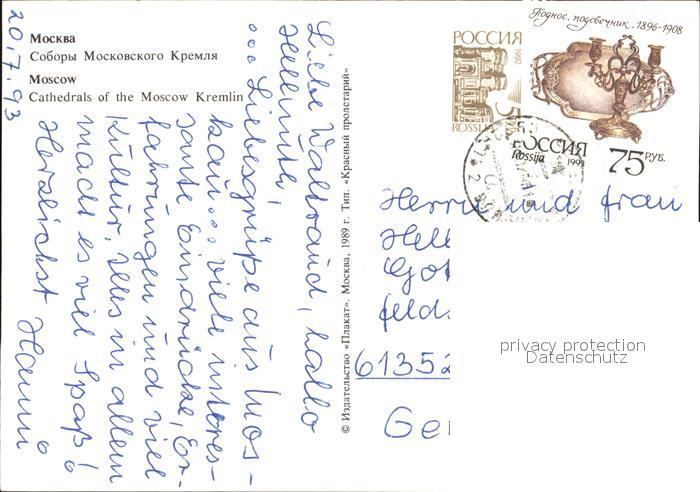 Москва
Соборы Московского Кремля
Moscow
Cathedrals of the Moscow Kremlin
20.7.93
Liebe Waltraud, hallo
Hellmut,
... Liebesgrüße aus Mos-
kau... viele interes-
sante Eindrücke, Er-
fahrungen und viel
Kultur. Alles in allem
macht es viel Spaß!
Herzlichst Hanni
© Издательство «Плакат». Москва, 1989 г. Тип. «Красный пролетарий»
РОССИЯ
1992
5
ROSSIJA
Поднос, подсвечник. 1896-1908
РОССИЯ
Rossija
1993
75 РУБ.
Herrn und Frau
Hell
Got
feld
61352
Ger
privacy protection
Datenschutz